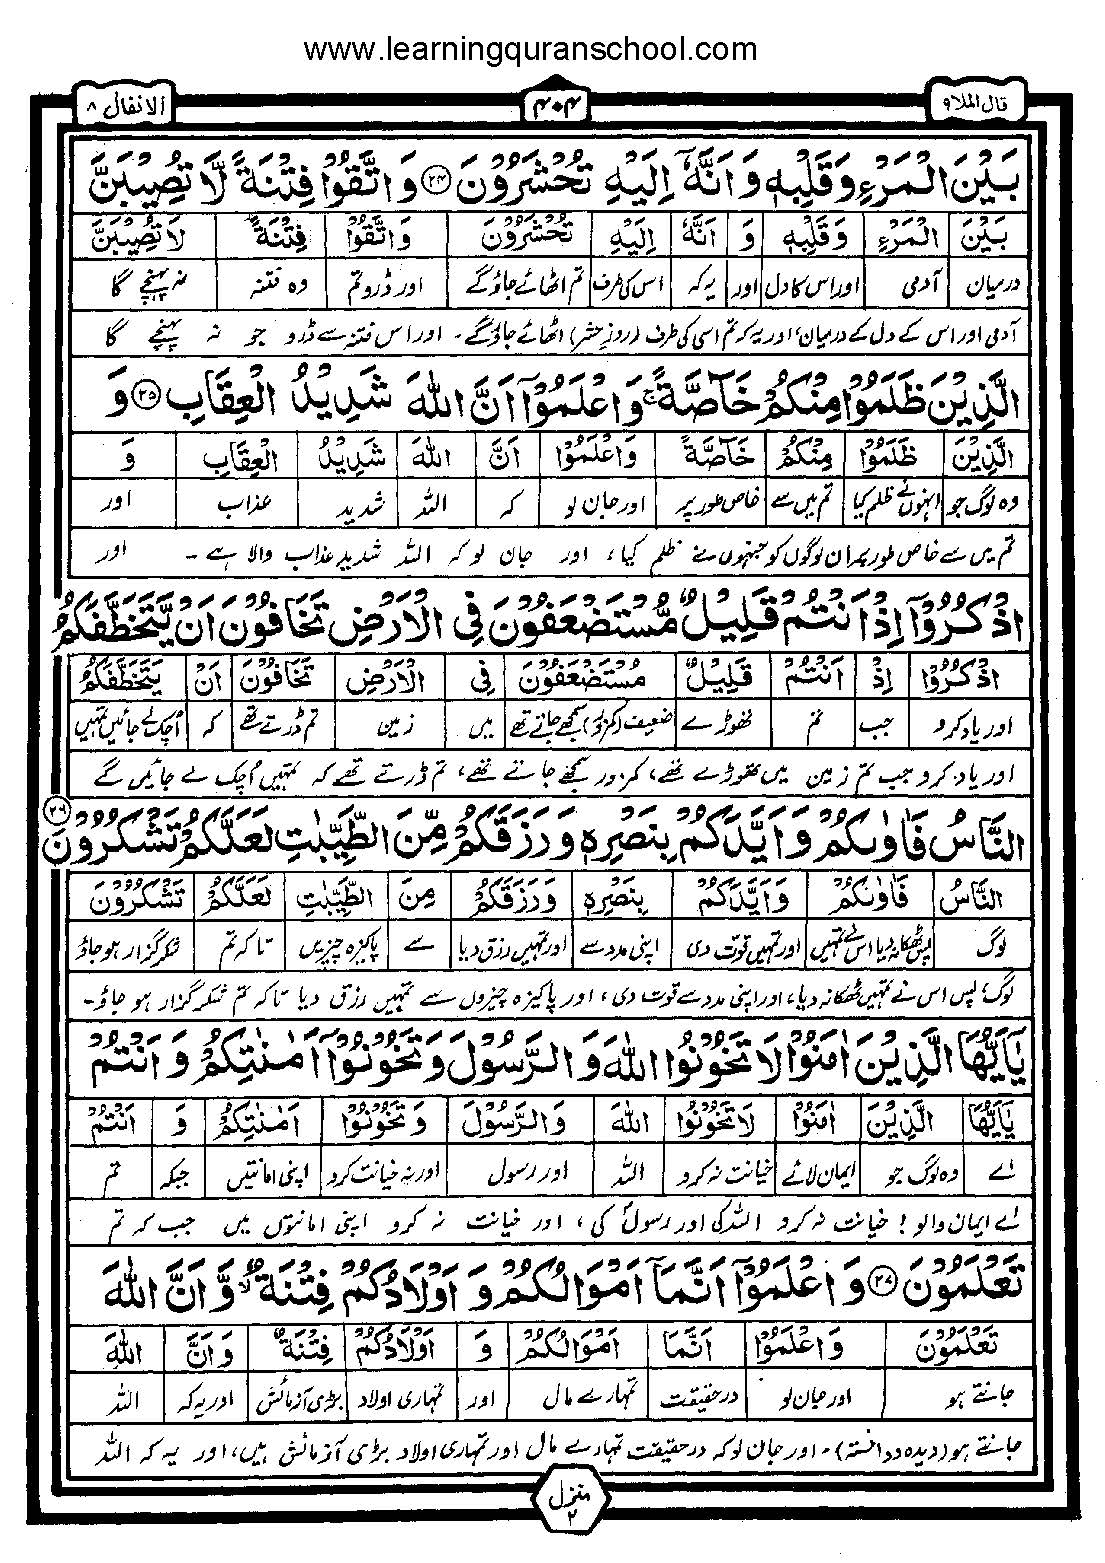 www.learningquranschool.com
قال الملا۹
۴۰۴
الانفال ۸
بَيْنَ الْمَرْءِ وَقَلْبِهٖ وَاَنَّهٗۤ اِلَيْهِ تُحْشَرُوْنَ ۲۴ وَاتَّقُوْا فِتْنَةً لَّا تُصِيْبَنَّ
بَيْنَ الْمَرْءِ وَقَلْبِهٖ وَ اَنَّهٗ اِلَيْهِ تُحْشَرُوْنَ وَاتَّقُوْا فِتْنَةً لَا تُصِيْبَنَّ
درمیان آدمی اور اس کا دل اور یہ کہ اس کی طرف تم اٹھائے جاؤ گے اور ڈرو تم وہ فتنہ نہ پہنچے گا
آدمی اور اس کے دل کے درمیان، اور یہ کہ تم اسی کی طرف (روزِ حشر) اٹھائے جاؤ گے۔ اور اس فتنہ سے ڈرو جو نہ پہنچے گا
الَّذِيْنَ ظَلَمُوْا مِنْكُمْ خَآصَّةً ۚ وَاعْلَمُوْۤا اَنَّ اللّٰهَ شَدِيْدُ الْعِقَابِ ۲۵ وَ
الَّذِيْنَ ظَلَمُوْا مِنْكُمْ خَآصَّةً وَاعْلَمُوْۤا اَنَّ اللّٰهَ شَدِيْدُ الْعِقَابِ وَ
وہ لوگ جو انہوں نے ظلم کیا تم میں سے خاص طور پر اور جان لو کہ اللہ شدید عذاب اور
تم میں سے خاص طور پر ان لوگوں کو جنہوں نے ظلم کیا، اور جان لو کہ اللہ شدید عذاب والا ہے۔ اور
اذْكُرُوْۤا اِذْ اَنْتُمْ قَلِيْلٌ مُّسْتَضْعَفُوْنَ فِى الْاَرْضِ تَخَافُوْنَ اَنْ يَّتَخَطَّفَكُمُ
اذْكُرُوْا اِذْ اَنْتُمْ قَلِيْلٌ مُسْتَضْعَفُوْنَ فِى الْاَرْضِ تَخَافُوْنَ اَنْ يَتَخَطَّفَكُمُ
اور یاد کرو جب تم تھوڑے ضعیف (کمزور) سمجھے جاتے تھے میں زمین تم ڈرتے تھے کہ اُچک لے جائیں تمہیں
اور یاد کرو جب تم زمین میں تھوڑے تھے، کمزور سمجھے جاتے تھے، تم ڈرتے تھے کہ تمہیں اُچک لے جائیں گے
النَّاسُ فَاٰوٰىكُمْ وَاَيَّدَكُمْ بِنَصْرِهٖ وَرَزَقَكُمْ مِّنَ الطَّيِّبٰتِ لَعَلَّكُمْ تَشْكُرُوْنَ ۲۶
النَّاسُ فَاٰوٰىكُمْ وَاَيَّدَكُمْ بِنَصْرِهٖ وَرَزَقَكُمْ مِنَ الطَّيِّبٰتِ لَعَلَّكُمْ تَشْكُرُوْنَ
لوگ پس ٹھکانہ دیا اس نے تمہیں اور تمہیں قوت دی اپنی مدد سے اور تمہیں رزق دیا سے پاکیزہ چیزیں تاکہ تم شکر گزار ہو جاؤ
لوگ، پس اس نے تمہیں ٹھکانہ دیا، اور اپنی مدد سے قوت دی، اور پاکیزہ چیزوں سے تمہیں رزق دیا تاکہ تم شکر گزار ہو جاؤ۔
يٰۤاَيُّهَا الَّذِيْنَ اٰمَنُوْا لَا تَخُوْنُوا اللّٰهَ وَالرَّسُوْلَ وَتَخُوْنُوْۤا اَمٰنٰتِكُمْ وَاَنْتُمْ
يٰۤاَيُّهَا الَّذِيْنَ اٰمَنُوْا لَا تَخُوْنُوا اللّٰهَ وَالرَّسُوْلَ وَتَخُوْنُوْا اَمٰنٰتِكُمْ وَ اَنْتُمْ
اے وہ لوگ جو ایمان لائے خیانت نہ کرو اللہ اور رسول اور نہ خیانت کرو اپنی امانتیں جبکہ تم
اے ایمان والو! خیانت نہ کرو اللہ کی اور رسول کی، اور خیانت نہ کرو اپنی امانتوں میں جب کہ تم
تَعْلَمُوْنَ ۲۷ وَاعْلَمُوْۤا اَنَّمَاۤ اَمْوَالُكُمْ وَاَوْلَادُكُمْ فِتْنَةٌ ۙ وَّاَنَّ اللّٰهَ
تَعْلَمُوْنَ وَاعْلَمُوْا اَنَّمَا اَمْوَالُكُمْ وَ اَوْلَادُكُمْ فِتْنَةٌ وَاَنَّ اللّٰهَ
جانتے ہو اور جان لو درحقیقت تمہارے مال اور تمہاری اولاد بڑی آزمائش اور یہ کہ اللہ
جانتے ہو (دیدہ و دانستہ)۔ اور جان لو کہ درحقیقت تمہارے مال اور تمہاری اولاد بڑی آزمائش ہیں، اور یہ کہ اللہ
منزل ۲